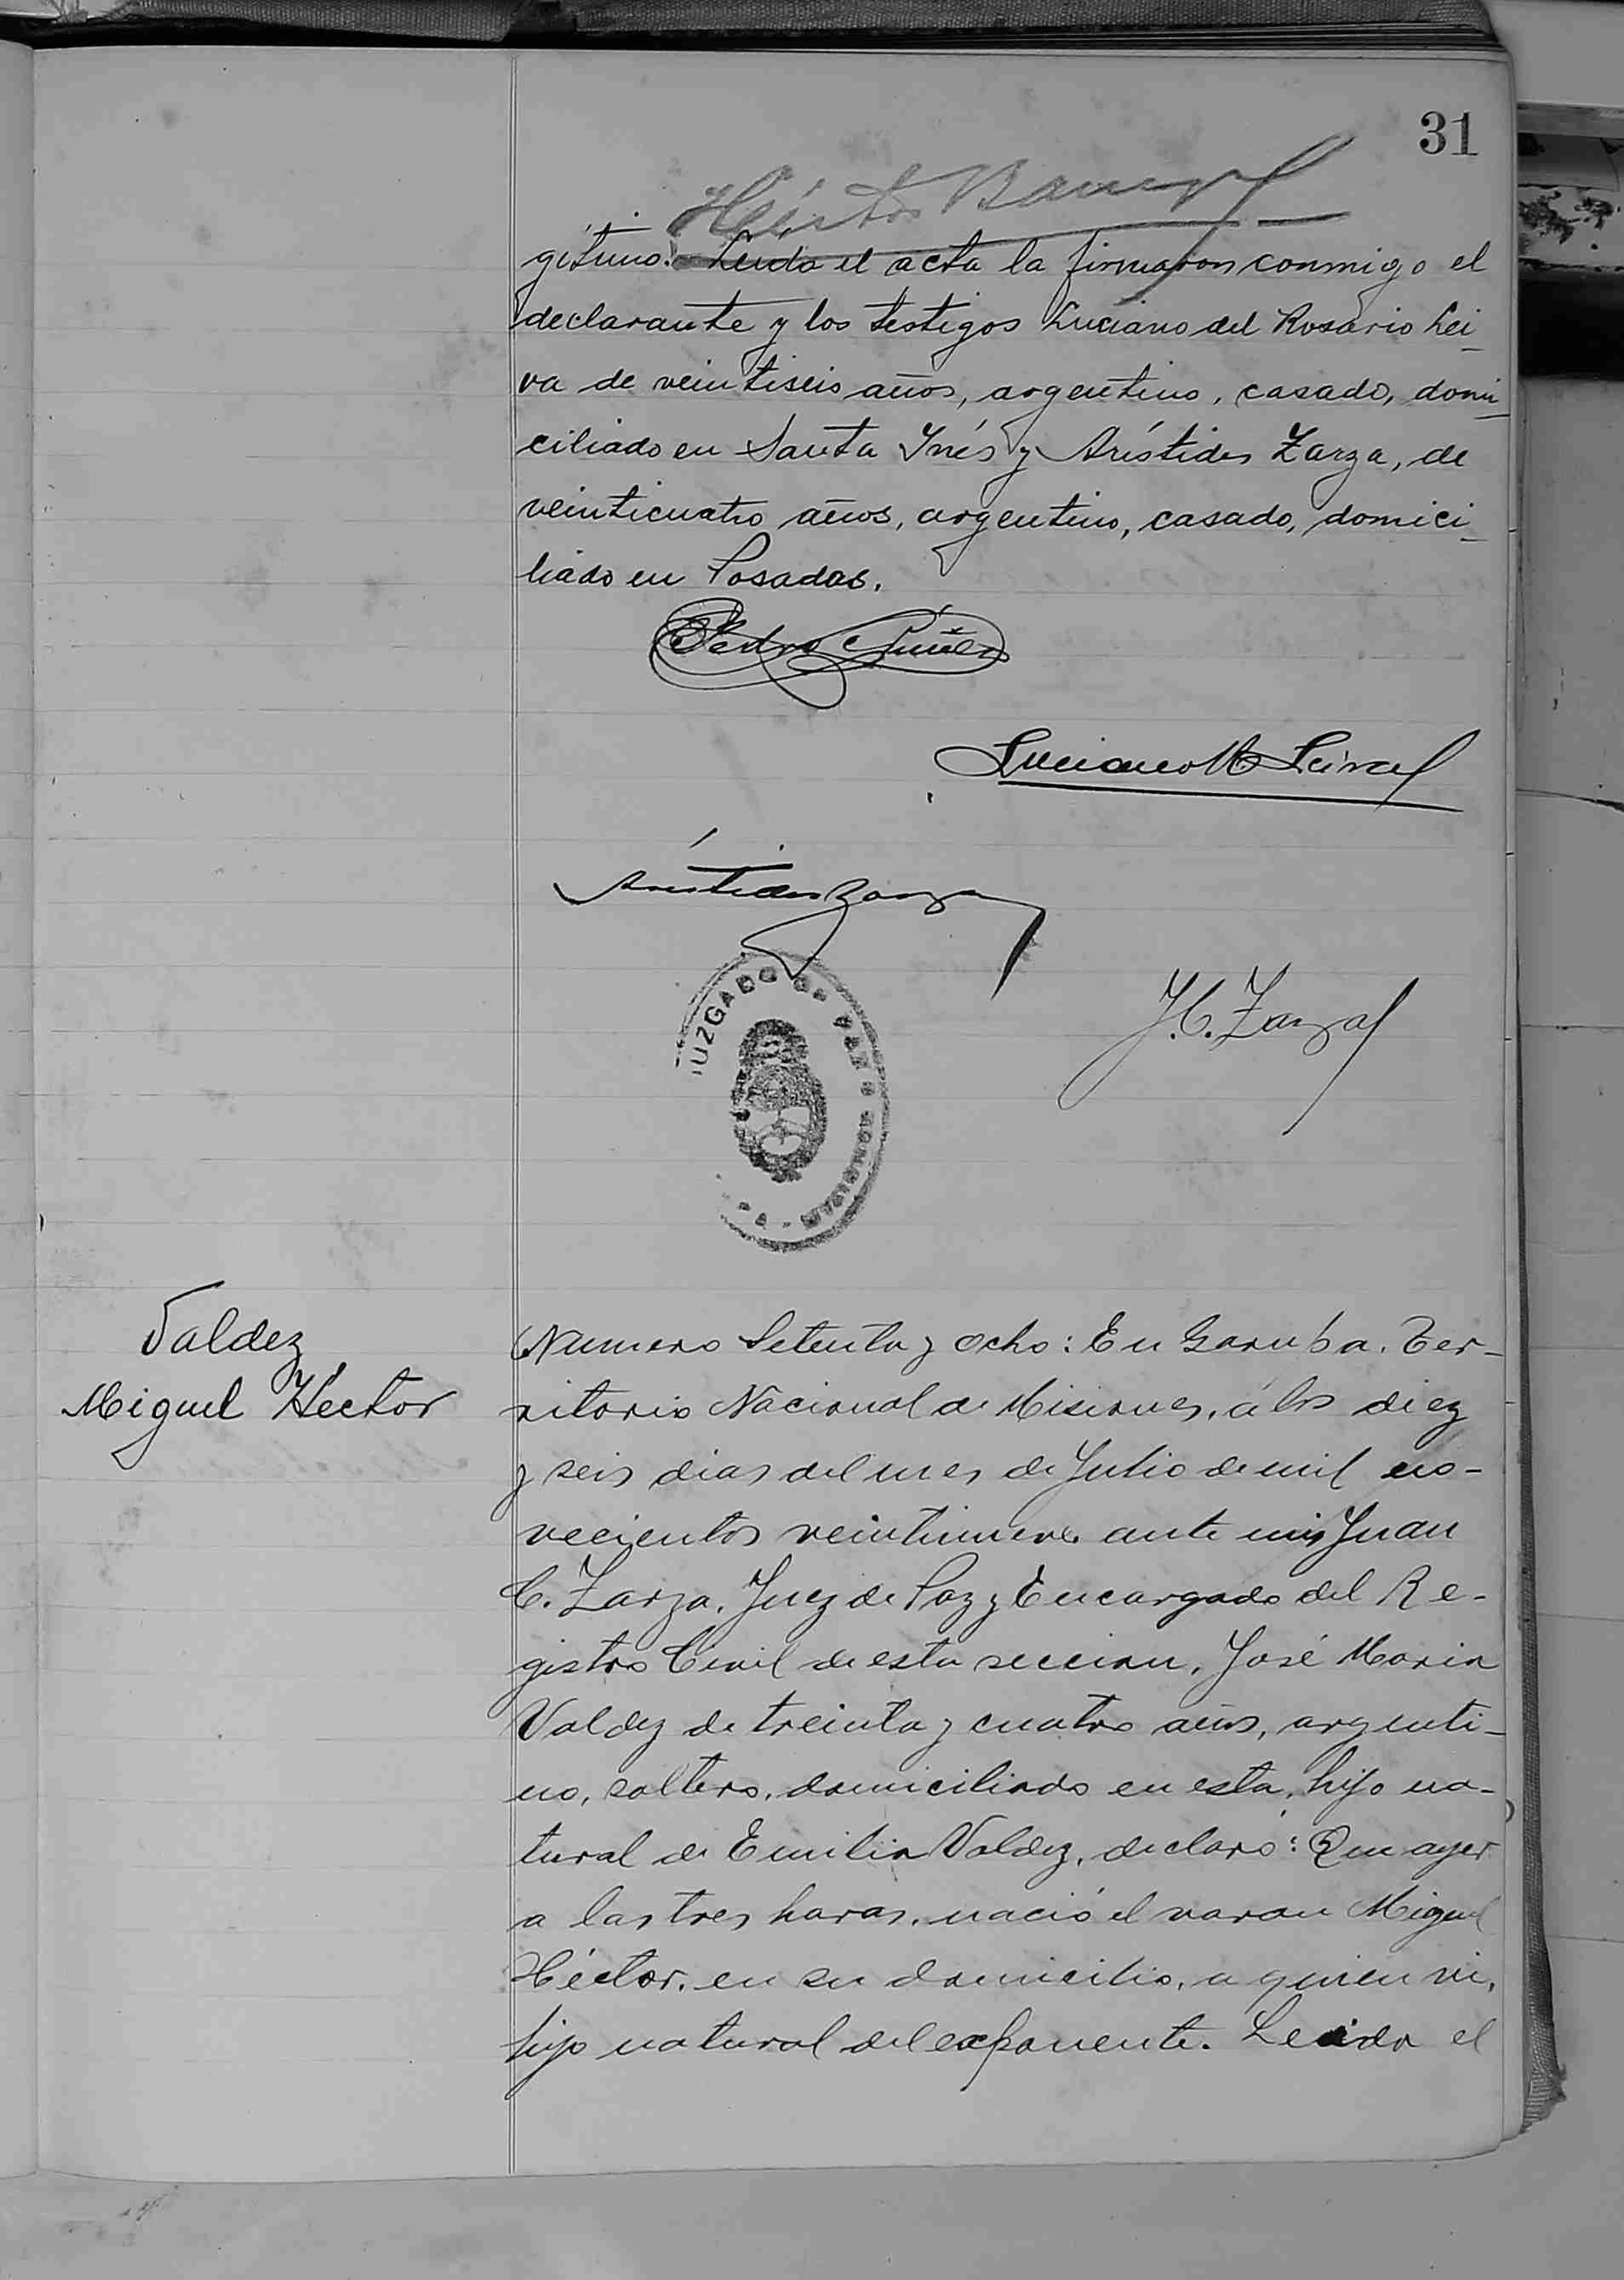 31
Héctor
gítimo. Leída el acta la firmaron conmigo el
declarante y los testigos Luciano del Rosario Lei-
va de veintiseis años, argentino, casado, domi-
ciliado en Santa Inés y Arístides Zarza, de
veinticuatro años, argentino, casado, domici-
liado en Posadas.
Pedro
Luciano R Leiva
Arístides Zarza
JUZGADO DE PAZ
MISIONES
J. C. Zarza
Valdez
Miguel Héctor
Numero Setenta y ocho: En Garupá. Ter-
ritorio Nacional de Misiones, á los diez
y seis dias del mes de Julio de mil no-
vecientos veintinueve ante mi, Juan
C. Zarza, Juez de Paz y Encargado del Re-
gistro Civil de esta seccion, José Maria
Valdez de treinta y cuatro años, argenti-
no, soltero, domiciliado en esta, hijo na-
tural de Emilia Valdez, declaró: Que ayer
a las tres horas, nació el varon Miguel
Héctor, en su domicilio, a quien vi,
hijo natural del exponente. Leida el